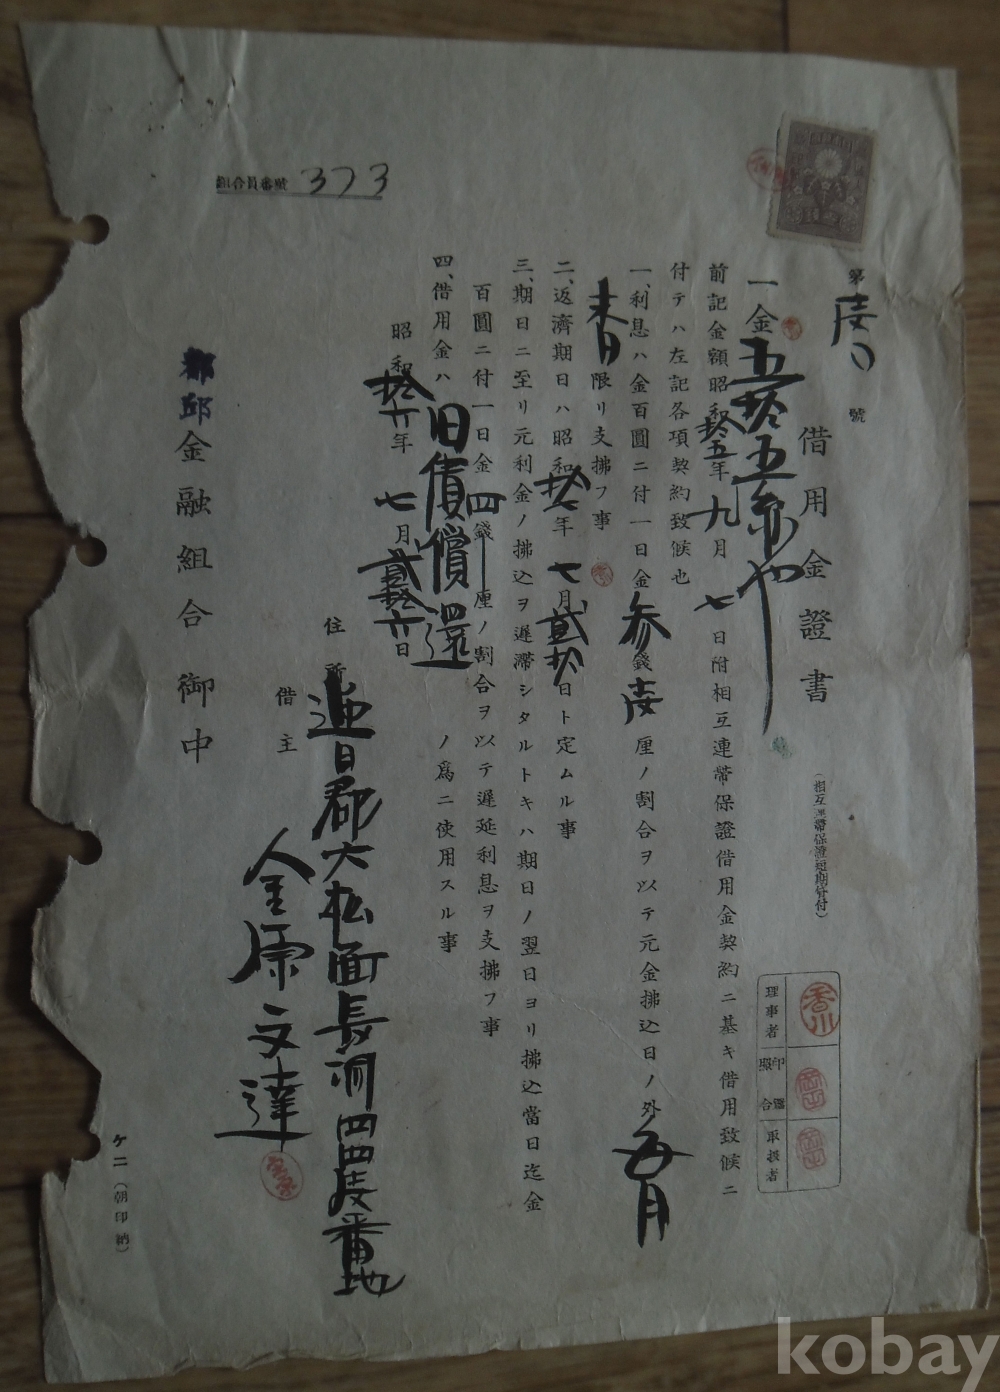 組合員番號 373
第 號
借用金證書
(相互連帶保證短期貸付)
一金五拾五円也
前記金額昭和拾五年九月七日附相互連帶保證借用金契約ニ基キ借用致候ニ
付テハ左記各項契約致候也
一、利息ハ金百圓ニ付一日金参錢 厘ノ割合ヲ以テ元金拂込日ノ外每月
末日限リ支拂フ事
二、返濟期日ハ昭和 年七月貳拾 日ト定ムル事
三、期日ニ至リ元利金ノ拂込ヲ遲滯シタルトキハ期日ノ翌日ヨリ拂込當日迄金
百圓ニ付一日金四錢 厘ノ割合ヲ以テ遲延利息ヲ支拂フ事
四、借用金ハ旧債償還ノ爲ニ使用スル事
昭和拾六年七月貳拾六日
住所 達日郡 面長洞四四 番地
借主 金原文達
都邱金融組合御中
理事者
印鑑照合
取扱者
香川
ケ二(朝印納)
kobay